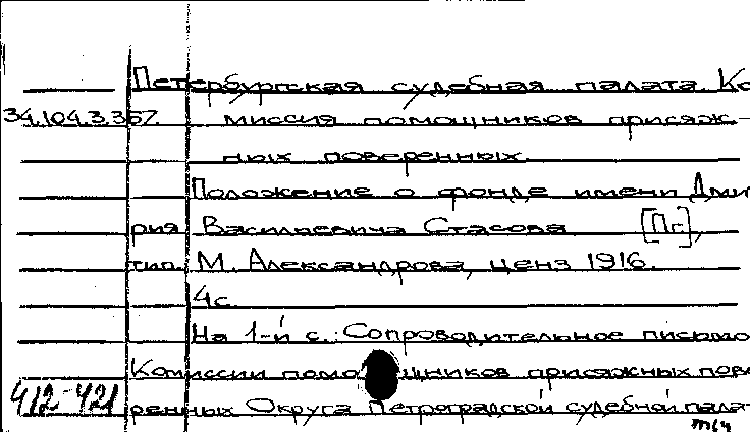 Петербургская судебная палата. Ко
34.104.3.367. миссия помощников присяж-
ных поверенных.
Положение о фонде имени Дми
рия Васильевича Стасова [Пг],
тип. М. Александрова, ценз 1916.
4с.
На 1-й с.: Сопроводительное письмо
Комиссии помощников присяжных пов
412-421 ренных Округа Петроградской судебной палат